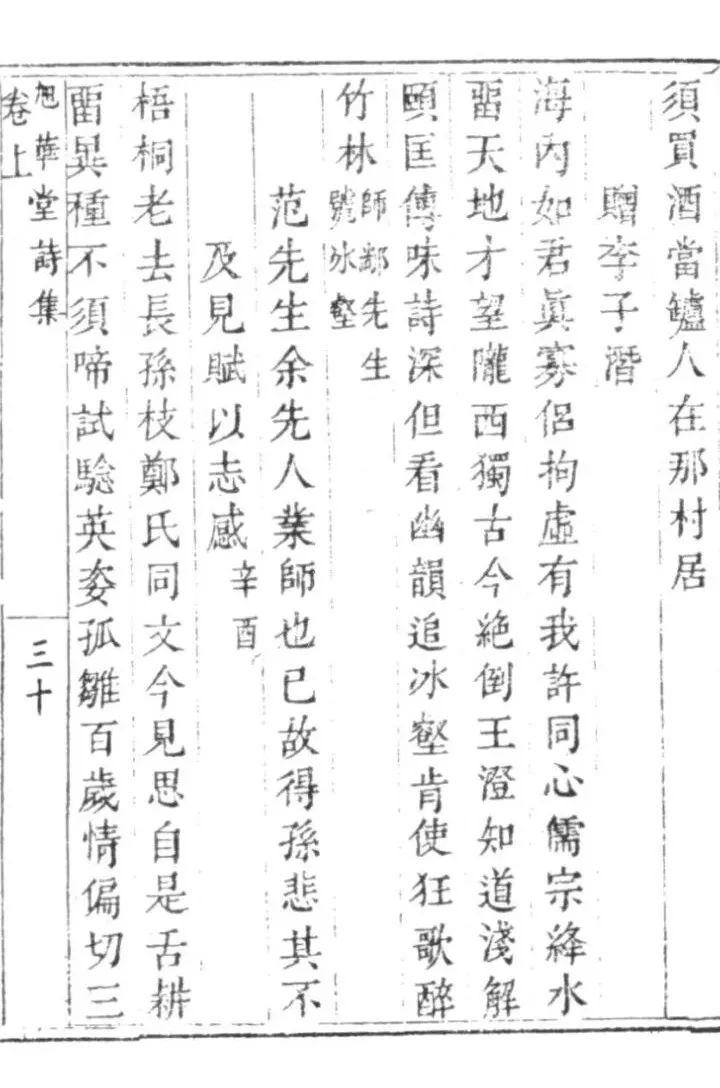 須買酒當鑪人在那村居
贈李子潛
海內如君眞寡侶拘虛有我許同心儒宗絳水
畱天地才望隴西獨古今絕倒王澄知道淺解
頤匡傳味詩深但看幽韻追冰壑肯使狂歌醉
竹林師鄐先生
號冰壑
范先生余先人業師也已故得孫悲其不
及見賦以志感辛酉
梧桐老去長孫枝鄭氏同文今見思自是舌耕
畱異種不須啼試驗英姿孤雛百歲情偏切三
旭華堂詩集
卷上
三十